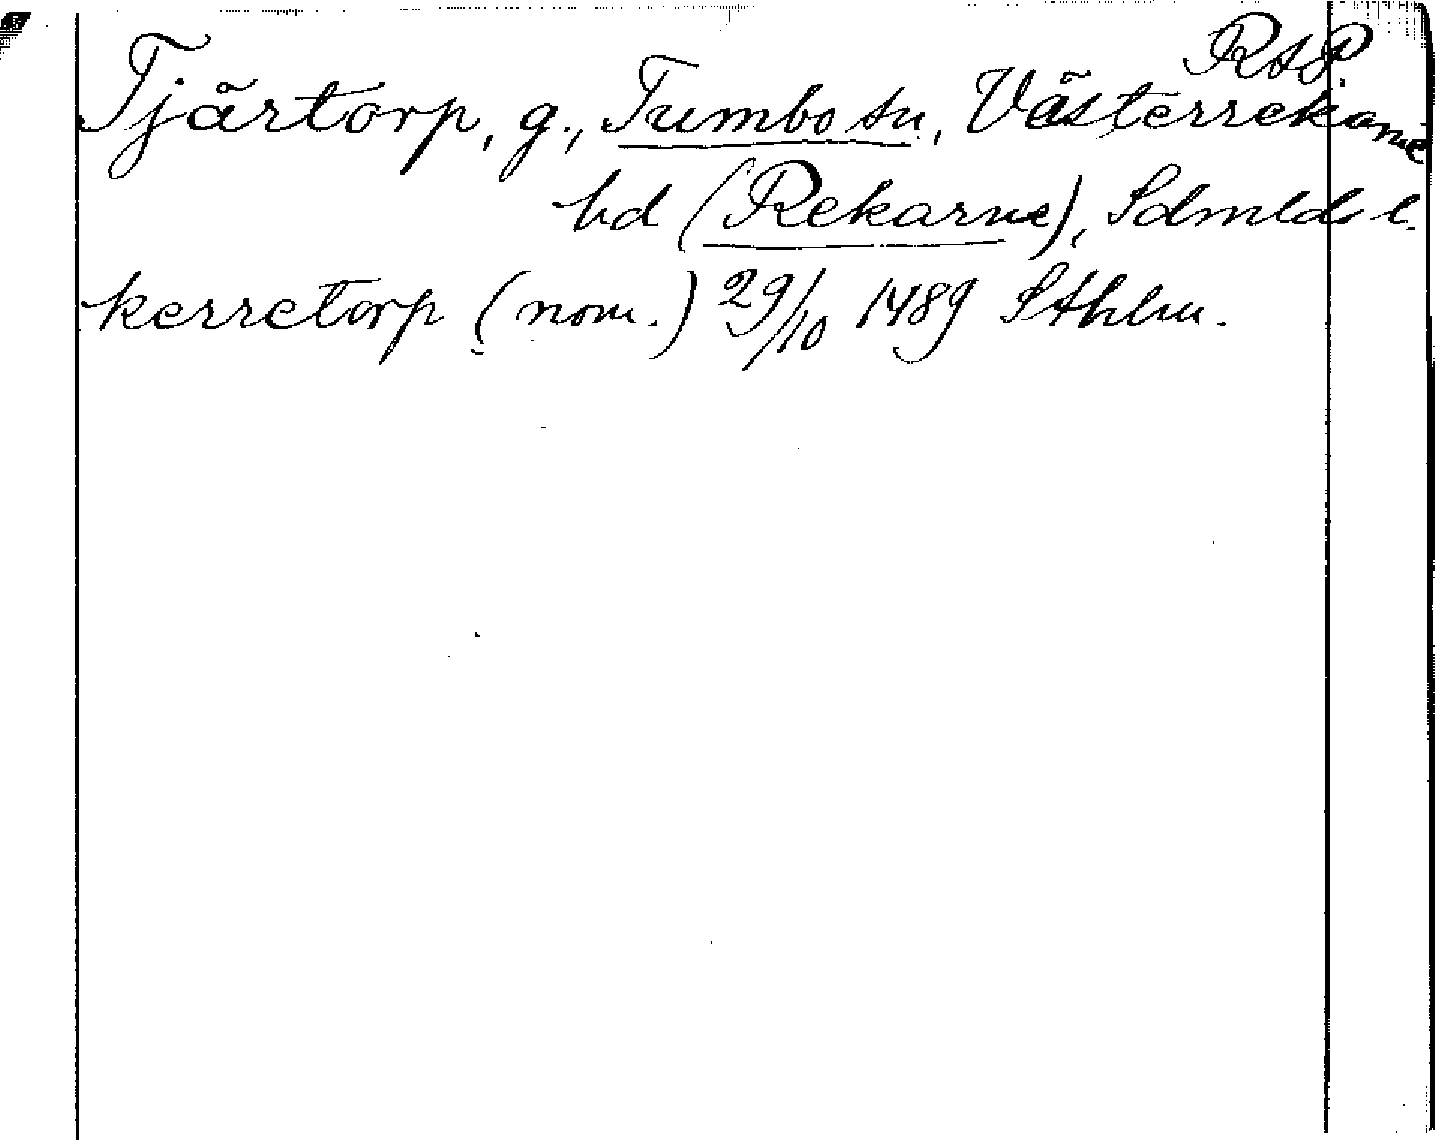 RAP.
Tjärtorp, g., Tumbo sn, Västerrekarne
hd (Rekarne), Sdmlds l.
kerretorp (nom.) 29/10 1489 Sthlm.